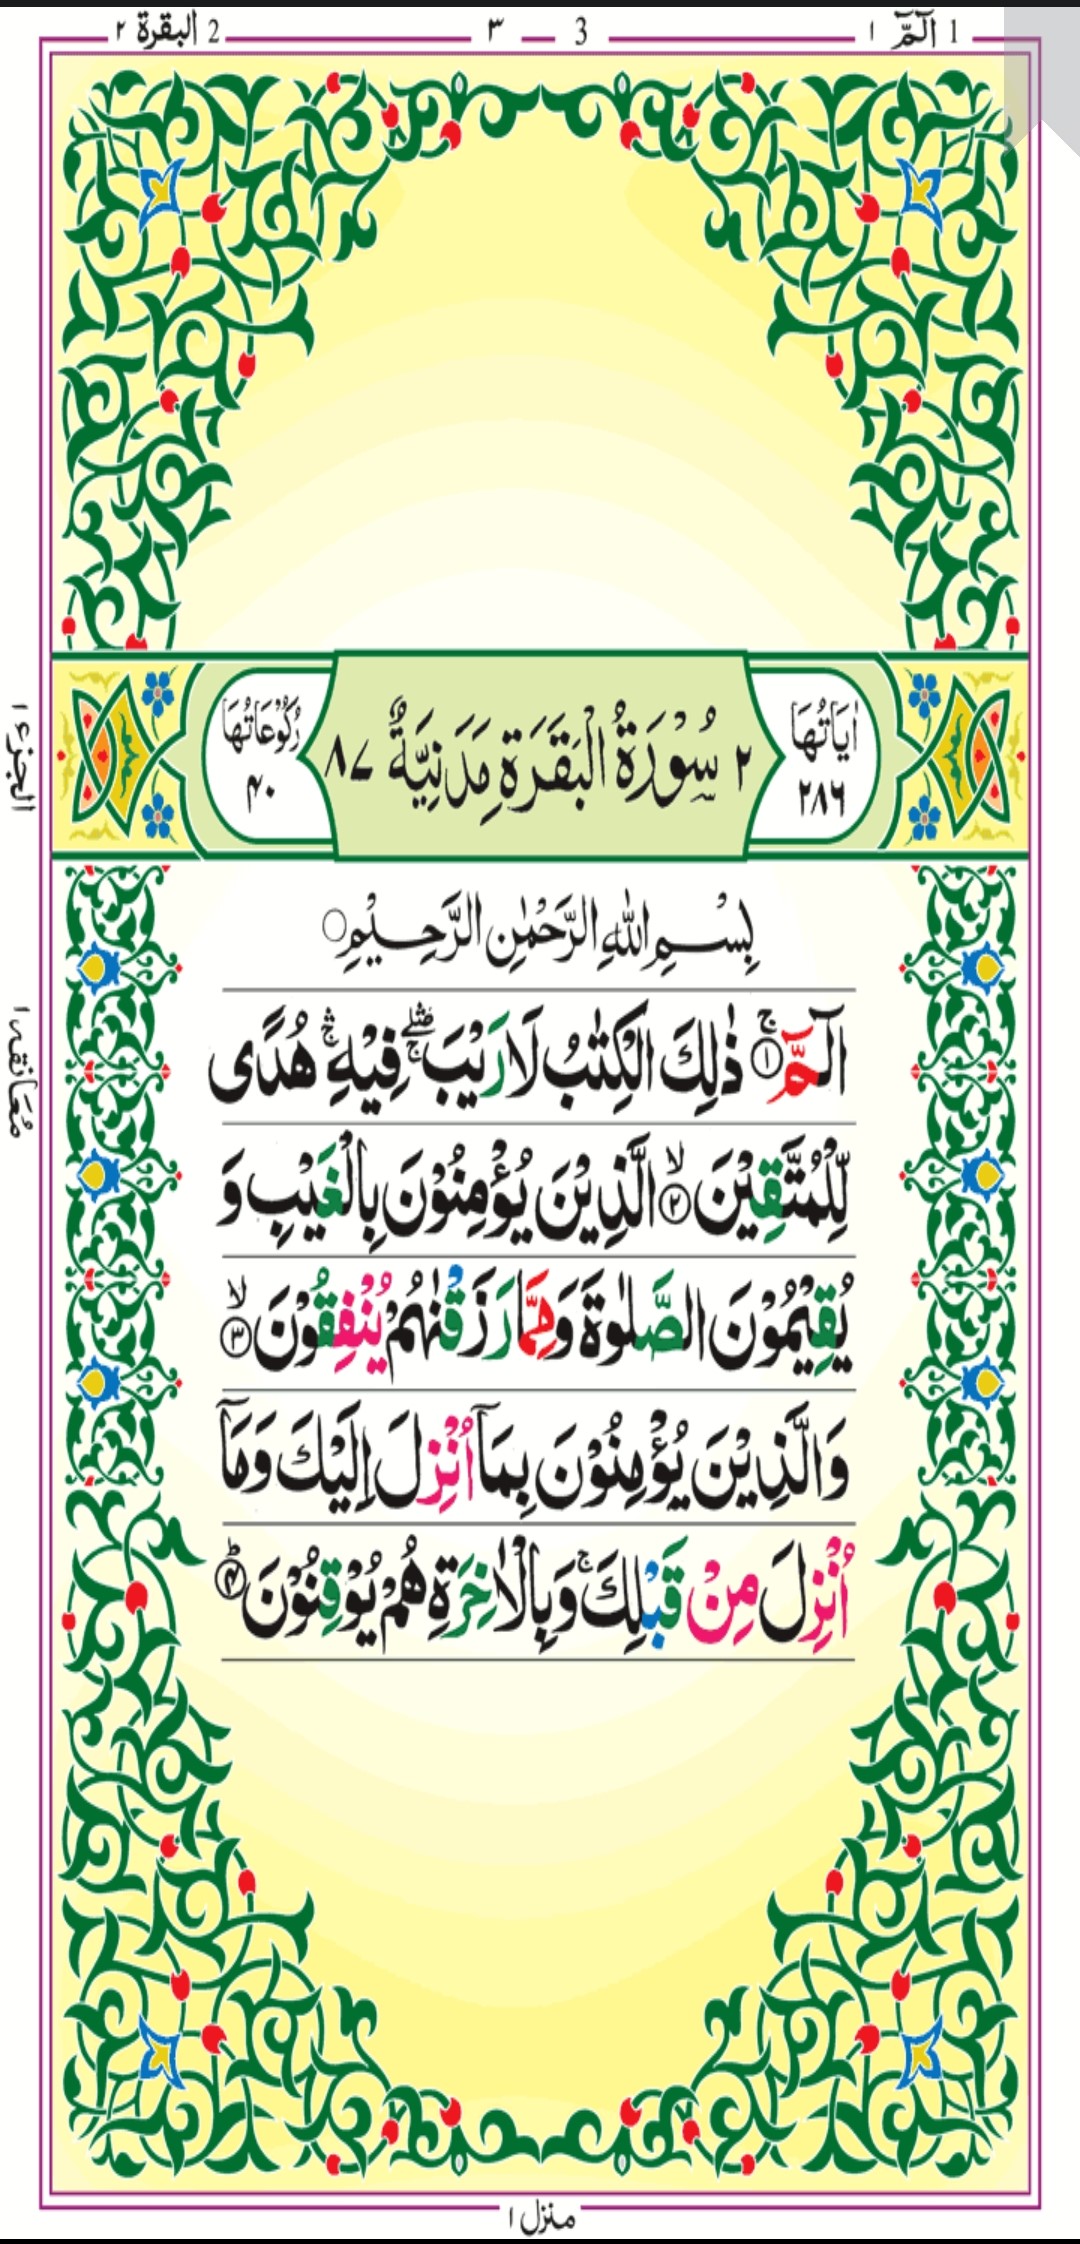 2 البقرة ٢
٣ — 3
1 الٓمّٓ ١
اٰيَاتُهَا ٢٨٦
٢ سُوْرَةُ الْبَقَرَةِ مَدَنِيَّةٌ ٨٧
رُكُوْعَاتُهَا ۴۰
بِسْمِ اللّٰهِ الرَّحْمٰنِ الرَّحِيْمِ
الٓمّٓ ۚ﴿١﴾ ذٰلِكَ الْكِتٰبُ لَا رَيْبَ ۛۚ فِيْهِ ۛۚ هُدًى
لِّلْمُتَّقِيْنَ ۙ﴿٢﴾ الَّذِيْنَ يُؤْمِنُوْنَ بِالْغَيْبِ وَ
يُقِيْمُوْنَ الصَّلٰوةَ وَمِمَّا رَزَقْنٰهُمْ يُنْفِقُوْنَ ۙ﴿٣﴾
وَالَّذِيْنَ يُؤْمِنُوْنَ بِمَآ اُنْزِلَ اِلَيْكَ وَمَآ
اُنْزِلَ مِنْ قَبْلِكَ ۚ وَبِالْاٰخِرَةِ هُمْ يُوْقِنُوْنَ ؕ﴿۴﴾
الجزء ١
مُعَانقة ١
منزل ١